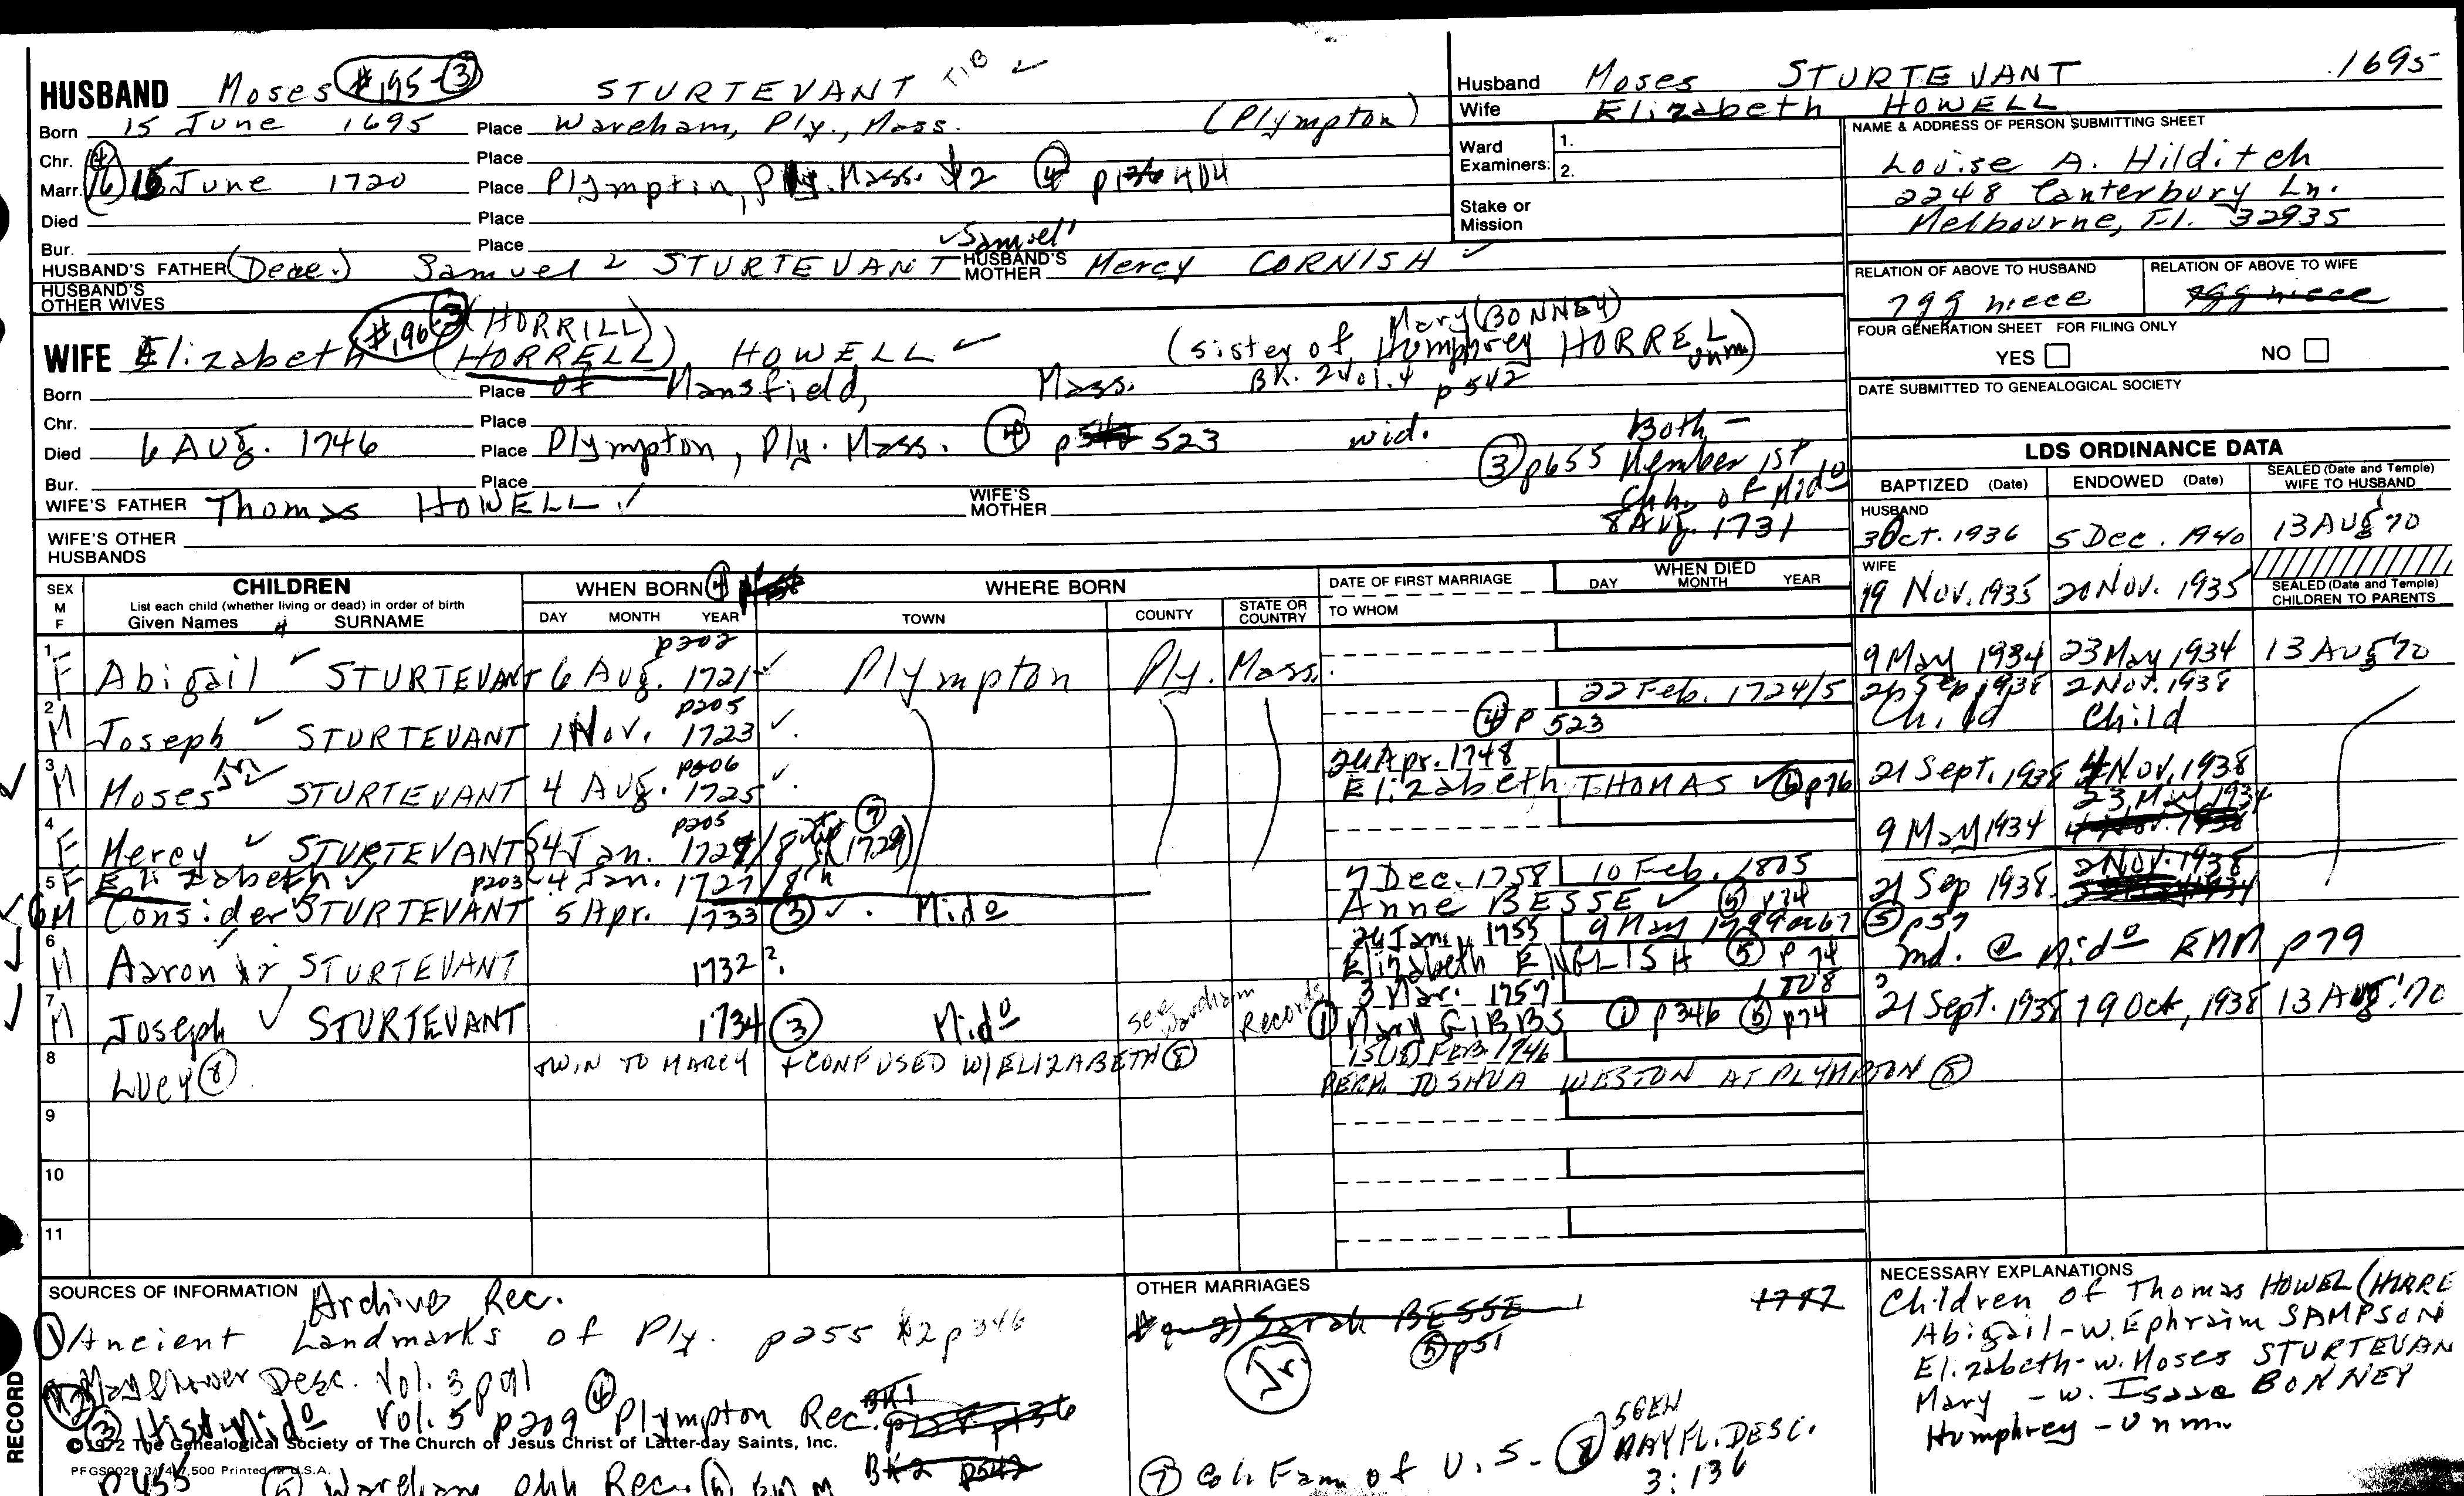 HUSBAND Moses #195-3 STURTEVANT TIB ✓
Born 15 June 1695 Place Wareham, Ply., Mass. (Plympton)
Chr. Place
Marr. June 1720 Place Plymptin, Mass. 4 404
Died Place
Bur. Place
✓ Samuel'
HUSBAND'S FATHER (Dece.) Samuel 2 STURTEVANT HUSBAND'S MOTHER Mercy CORNISH ✓
HUSBAND'S OTHER WIVES
(HORRILL) Mary (BONNEY)
WIFE Elizabeth #196-3 (HORRELL) HOWELL ✓ (sister of Humphrey HORREL unm)
BK. 2 Vol. 4 p 542
Born Place of Mansfield, Mass.
Chr. Place
Died 6 AUg. 1746 Place Plympton, Ply. Mass. 4 523 wid.
Both -
3 p655 Member 1st
Chh. of Mido
8 AUg. 1731
Bur. Place
WIFE'S FATHER Thomas HOWELL ✓ WIFE'S MOTHER
WIFE'S OTHER HUSBANDS
Husband Moses STURTEVANT 1695
Wife Elizabeth HOWELL
Ward Examiners: 1.
2.
Stake or Mission
NAME & ADDRESS OF PERSON SUBMITTING SHEET
Louise A. Hilditch
2248 Canterbury Ln.
Melbourne, Fl. 32935
RELATION OF ABOVE TO HUSBAND RELATION OF ABOVE TO WIFE
7gg niece
FOUR GENERATION SHEET FOR FILING ONLY
YES NO
DATE SUBMITTED TO GENEALOGICAL SOCIETY
LDS ORDINANCE DATA
BAPTIZED (Date) ENDOWED (Date) SEALED (Date and Temple) WIFE TO HUSBAND
HUSBAND
3 Oct. 1936 5 Dec. 1940 13 AUg '70
WIFE
19 Nov. 1935 20 Nov. 1935 SEALED (Date and Temple) CHILDREN TO PARENTS
SEX M F CHILDREN WHEN BORN 4 WHERE BORN DATE OF FIRST MARRIAGE WHEN DIED DAY MONTH YEAR
List each child (whether living or dead) in order of birth
Given Names SURNAME DAY MONTH YEAR TOWN COUNTY STATE OR COUNTRY TO WHOM
p202
1 F Abigail ✓ STURTEVANT 6 Aug. 1721 ✓ Plympton Ply. Mass. 9 May 1934 23 May 1934 13 AUg '70
p205 22 Feb. 1724/5 1938 2 Nov. 1938
2 M Joseph ✓ STURTEVANT 1 Nov. 1723 ✓ 4 p 523 Child Child
p206 1748
3 M Moses Jr ✓ STURTEVANT 4 AUg. 1725 ✓ Elizabeth THOMAS ✓ 6 p76 21 Sept. 1938 4 Nov. 1938
p205 7
4 F Mercy ✓ STURTEVANT 4 Jan. (1729) 9 May 1934
5 F Elizabeth ✓ p203 4 Jan. 1727/8 7 Dec. 1758 10 Feb. 1805 21 Sep 1938 2 Nov. 1938
6 M Consider STURTEVANT 5 Apr. 1733 3 ✓ Mido Anne BESSE ✓ 5 p74
Jan. 1755 9 May 5 p57
6 M Aaron STURTEVANT 1732? Elizabeth ENGLISH 5 p 74 md. @ Mido EMM p79
3 Mar. 1757 1808
7 M Joseph ✓ STURTEVANT 1734 3 Mido see Wareham Records 1 Mary GIBBS 1 p346 5 p74 21 Sept. 1938 19 Oct, 1938 13 AUg '70
15(18) FEB. 1746
8 LUCY 8 TWIN TO MARCY + CONFUSED W/ELIZABETH 8 PERH. JOSHUA WESTON AT PLYMPTON 8
9
10
11
SOURCES OF INFORMATION Archive Rec.
1 Ancient Landmarks of Ply. p255 p346
2 Mayflower Desc. Vol. 3 p91
3 Hist. Mido Vol. 5 p209 4 Plympton Rec.
©1972 The Genealogical Society of The Church of Jesus Christ of Latter-day Saints, Inc.
Printed in U.S.A.
p455 5 Wareham Chh Rec. 6 EMM
OTHER MARRIAGES
Sarah BESSE 1787
Jr. 5 p51
7 Col. Fam of U.S. - 8 5GEN
MAYFL. DESC.
3:136
NECESSARY EXPLANATIONS
Children of Thomas HOWEL (HORRE
Abigail - w. Ephraim SAMPSON
Elizabeth - w. Moses STURTEVAN
Mary - w. Isaac BONNEY
Humphrey - Unm.
RECORD